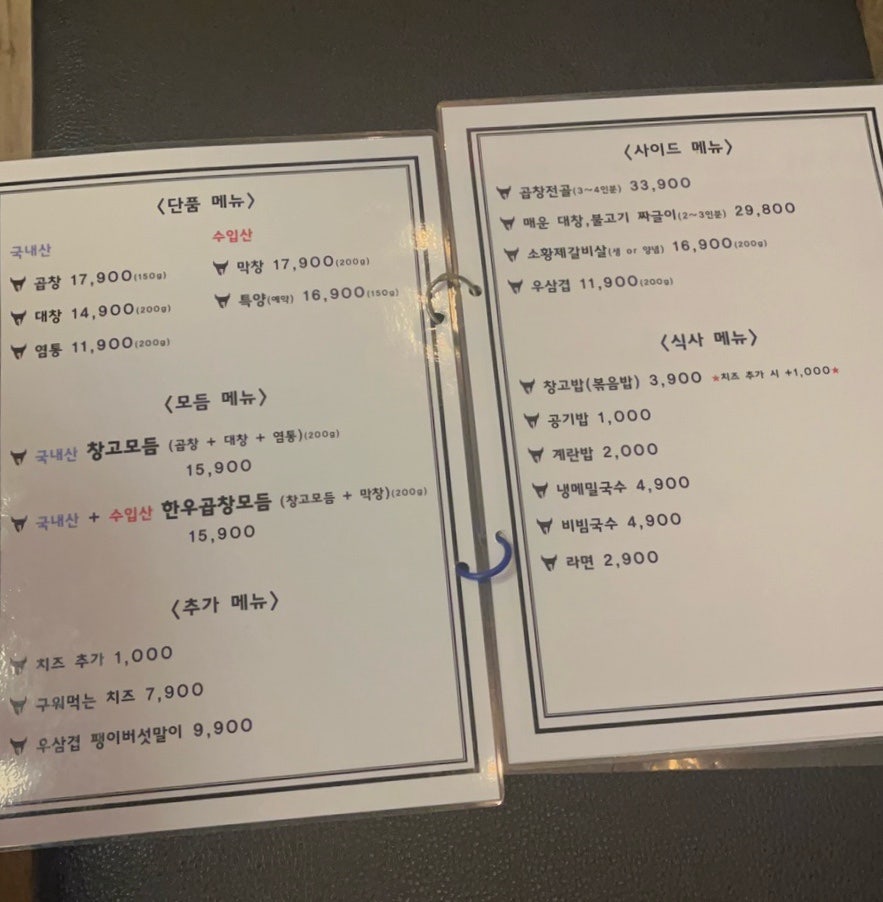 <단품 메뉴>
국내산
곱창 17,900(150g)
대창 14,900(200g)
염통 11,900(200g)
수입산
막창 17,900(200g)
특양(예약) 16,900(150g)
<모듬 메뉴>
국내산 창고모듬 (곱창 + 대창 + 염통)(200g)
15,900
국내산 + 수입산 한우곱창모듬 (창고모듬 + 막창)(200g)
15,900
<추가 메뉴>
치즈 추가 1,000
구워먹는 치즈 7,900
우삼겹 팽이버섯말이 9,900
<사이드 메뉴>
곱창전골(3~4인분) 33,900
매운 대창,불고기 짜글이(2~3인분) 29,800
소황제갈비살(생 or 양념) 16,900(200g)
우삼겹 11,900(200g)
<식사 메뉴>
창고밥(볶음밥) 3,900 *치즈 추가 시 +1,000*
공기밥 1,000
계란밥 2,000
냉메밀국수 4,900
비빔국수 4,900
라면 2,900